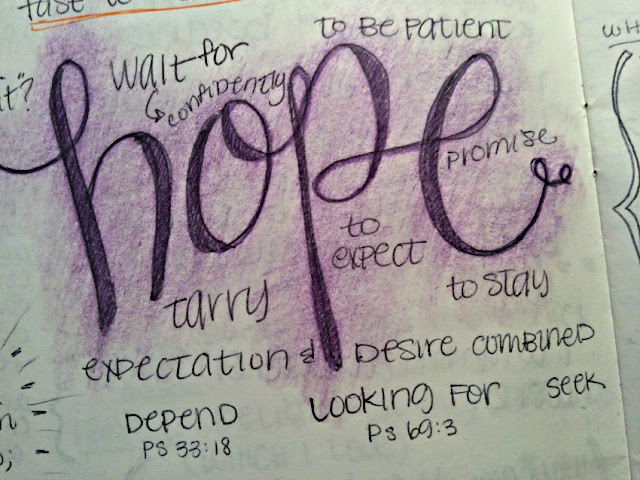 to Be Patient
Wait for
confidently
it"?
hope
promise
to
expect
tarry
to stay
expectation & Desire combined
Depend
Looking For
seek
PS 33:18
PS 69:3
WH